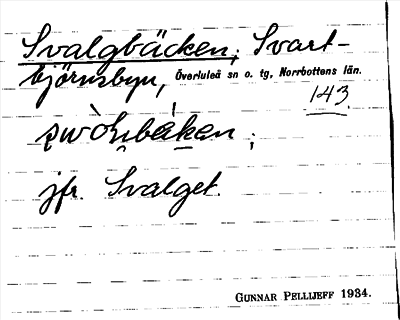 Svalgbäcken; Svart-
björnsbyn, Överluleå sn o. tg, Norrbottens län.
143
;
jfr. Svalget.
GUNNAR PELLIJEFF 1934.